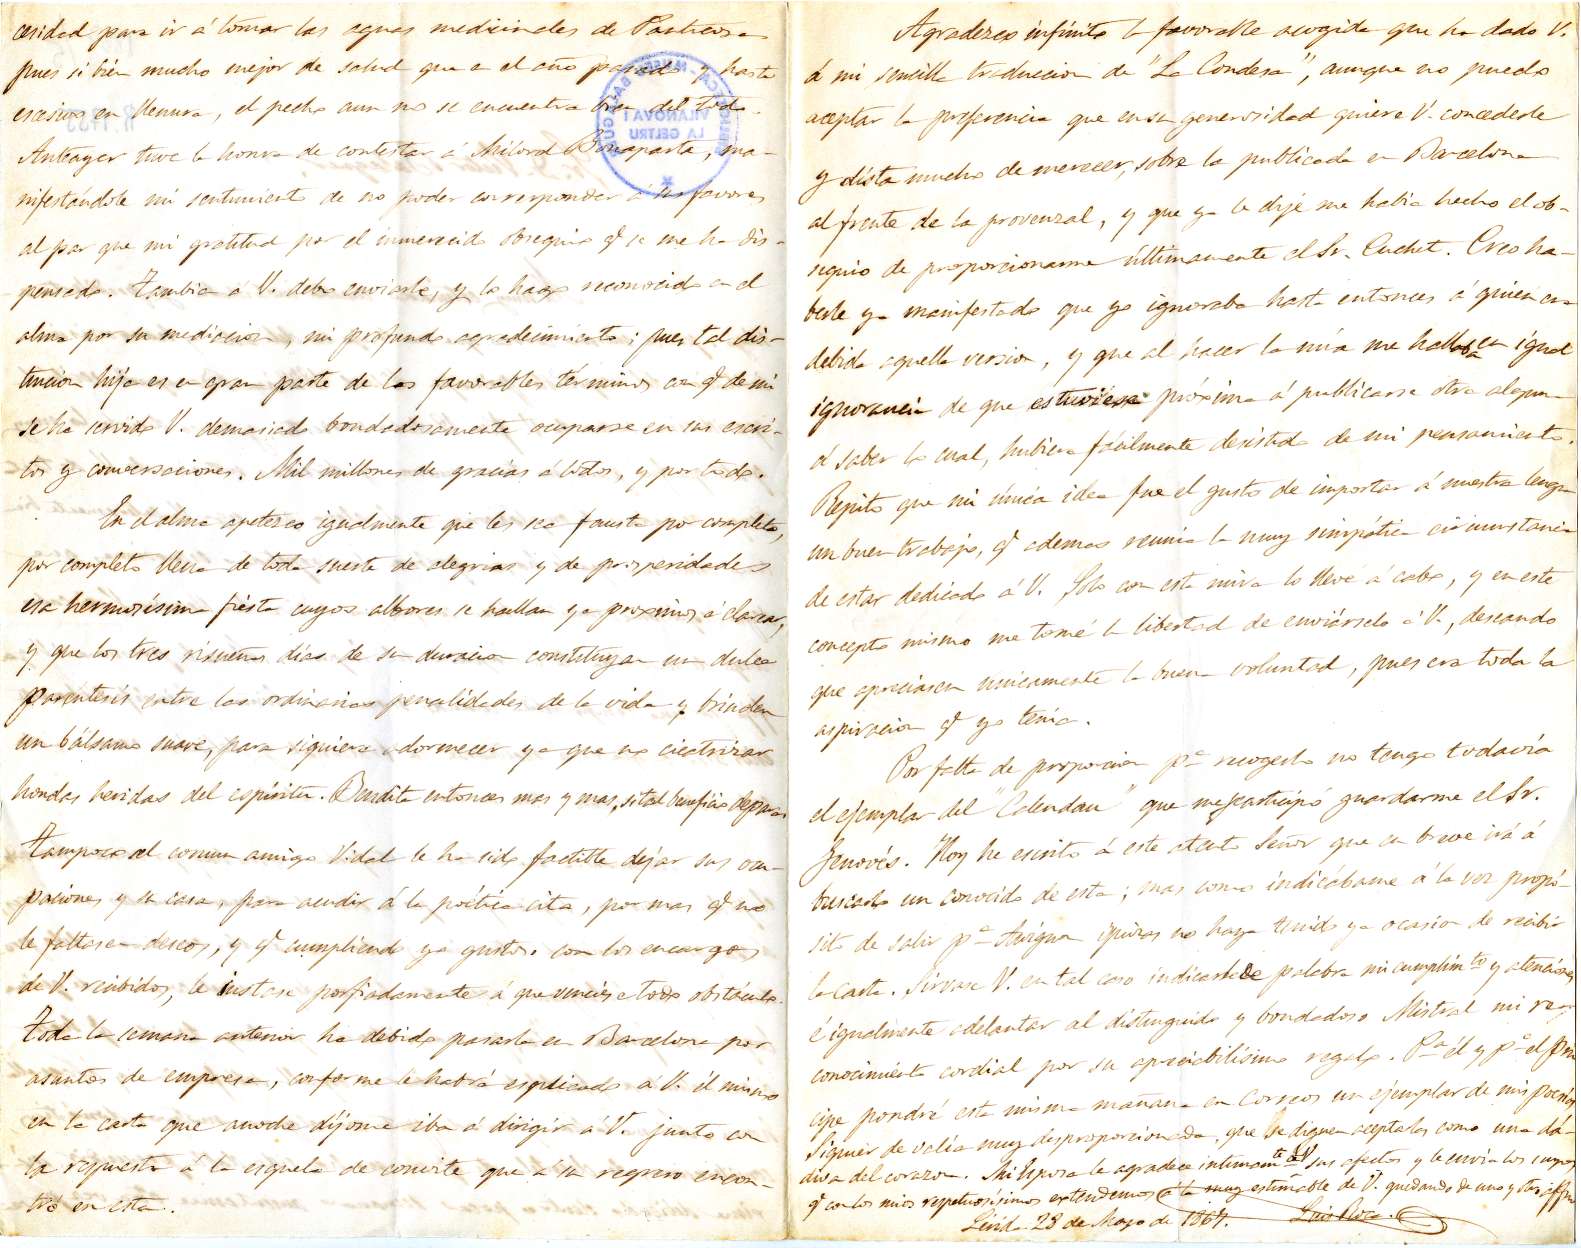 cesidad para ir á tomar las aguas medicinales de Panticosa
pues si bien mucho mejor de salud que en el año pasado y hasta
escesivo en llenura, el pecho aun no se encuentra bien del todo.
Anteayer tuve la honra de contestar á Milord Bonaparte, ma-
nifestándole mi sentimiento de no poder corresponder á sus favores
al par que mi gratitud por el inmerecido obsequio q̃ se me ha dis-
pensado. Tambien á V. debo enviarle, y lo hago reconocido en el
alma por su mediacion, mi profundo agradecimiento; pues tal dis-
tincion hija es en gran parte de los favorables términos con q̃ de mi
se ha servido V. demasiado bondadosamente ocuparse en sus escri-
tos y conversaciones. Mil millones de gracias á todos, y por todo.
En el alma apetezco igualmente que les sea fausta por completo,
por completo llena de toda suerte de alegrias y de prosperidades
esa hermosísima fiesta cuyos albores se hallan ya proximos á clarear,
y que los tres risueños dias de su duracion constituyan un dulce
parentesis entre las ordinarias penalidades de la vida y brinden
un bálsamo suave, para siquiera adormecer ya que no cicatrizar
hondas heridas del espíritu. Bendita entonces mas y mas, si tal beneficio
Tampoco al comun amigo Vidal le ha sido factible dejar sus ocu-
paciones y su casa, para acudir á la poética cita, por mas q̃ no
le faltasen deseos, y q̃ cumpliendo yo gustoso con los encargos
de V. recibidos, le instase porfiadamente á que venciese todo obstáculo.
Toda la semana anterior ha debido pasarla en Barcelona por
asuntos de empresa, conforme le habrá esplicado á V. él mismo
en la carta que anoche díjome iba á dirigir á V. junto con
la respuesta á la esquela de convite que á su regreso encon-
tró en esta.
BIBLIOTECA MUSEU BALAGUER
VILANOVA I
LA GELTRU
Agradezco infinito la favorable acogida que ha dado V.
á mi sencilla traduccion de "La Condesa", aunque no puedo
aceptar la preferencia que en su generosidad quiere V. concederle
y dista mucho de merecer, sobre la publicada en Barcelona
al frente de la provenzal, y que ya le dije me habia hecho el ob-
sequio de proporcionarme últimamente el Sr. Cuchet. Creo ha-
berle ya manifestado que yo ignoraba hasta entonces á quien era
debida aquella version, y que al hacer la mía me hallaba en igual
ignorancia de que estuviese próxima á publicarse otra alguna
á saber lo cual, hubiera fácilmente desistido de mi pensamiento.
Repito que mi única idea fue el gusto de importar á nuestra lengua
un buen trabajo, q̃ ademas reunia la muy simpática circunstancia
de estar dedicado á V. Solo con esta mira lo llevé á cabo, y en este
concepto mismo me tomé la libertad de enviárselo á V., deseando
que apreciasen unicamente la buena voluntad, pues era toda la
aspiracion q̃ yo tenia.
Por falta de proporcion pª recogerlo no tengo todavía
el ejemplar del "Calendau" que me participó guardarme el Sr.
Genovés. Hoy he escrito á este atento Señor que en breve irá á
buscarlo un conocido de esta; mas como indicábame á la vez propó-
sito de salir pª Avignon quizas no haya tenido ya ocasion de recibir
la carta. Sírvase V. en tal caso indicarle de palabra mi cumplimto y atenciones,
é igualmente adelantar al distinguido y bondadoso Mistral mi re-
conocimiento cordial por su apreciabilísimo regalo. Pª él y pª el Prín
cipe pondré esta misma mañana en Correos un ejemplar de mis poesias
siquier de valía muy desproporcionada, que se dignen aceptarlos como una dá-
diva del corazon. Mi Esposa le agradece intimamte á V. sus afectos y le envia los suyos
q̃ con los mios respetuosísimos extendemos á la muy estimable de V. quedando de uno y otra affmo
Lérida 23 de Mayo de 1867. Luis Roca.